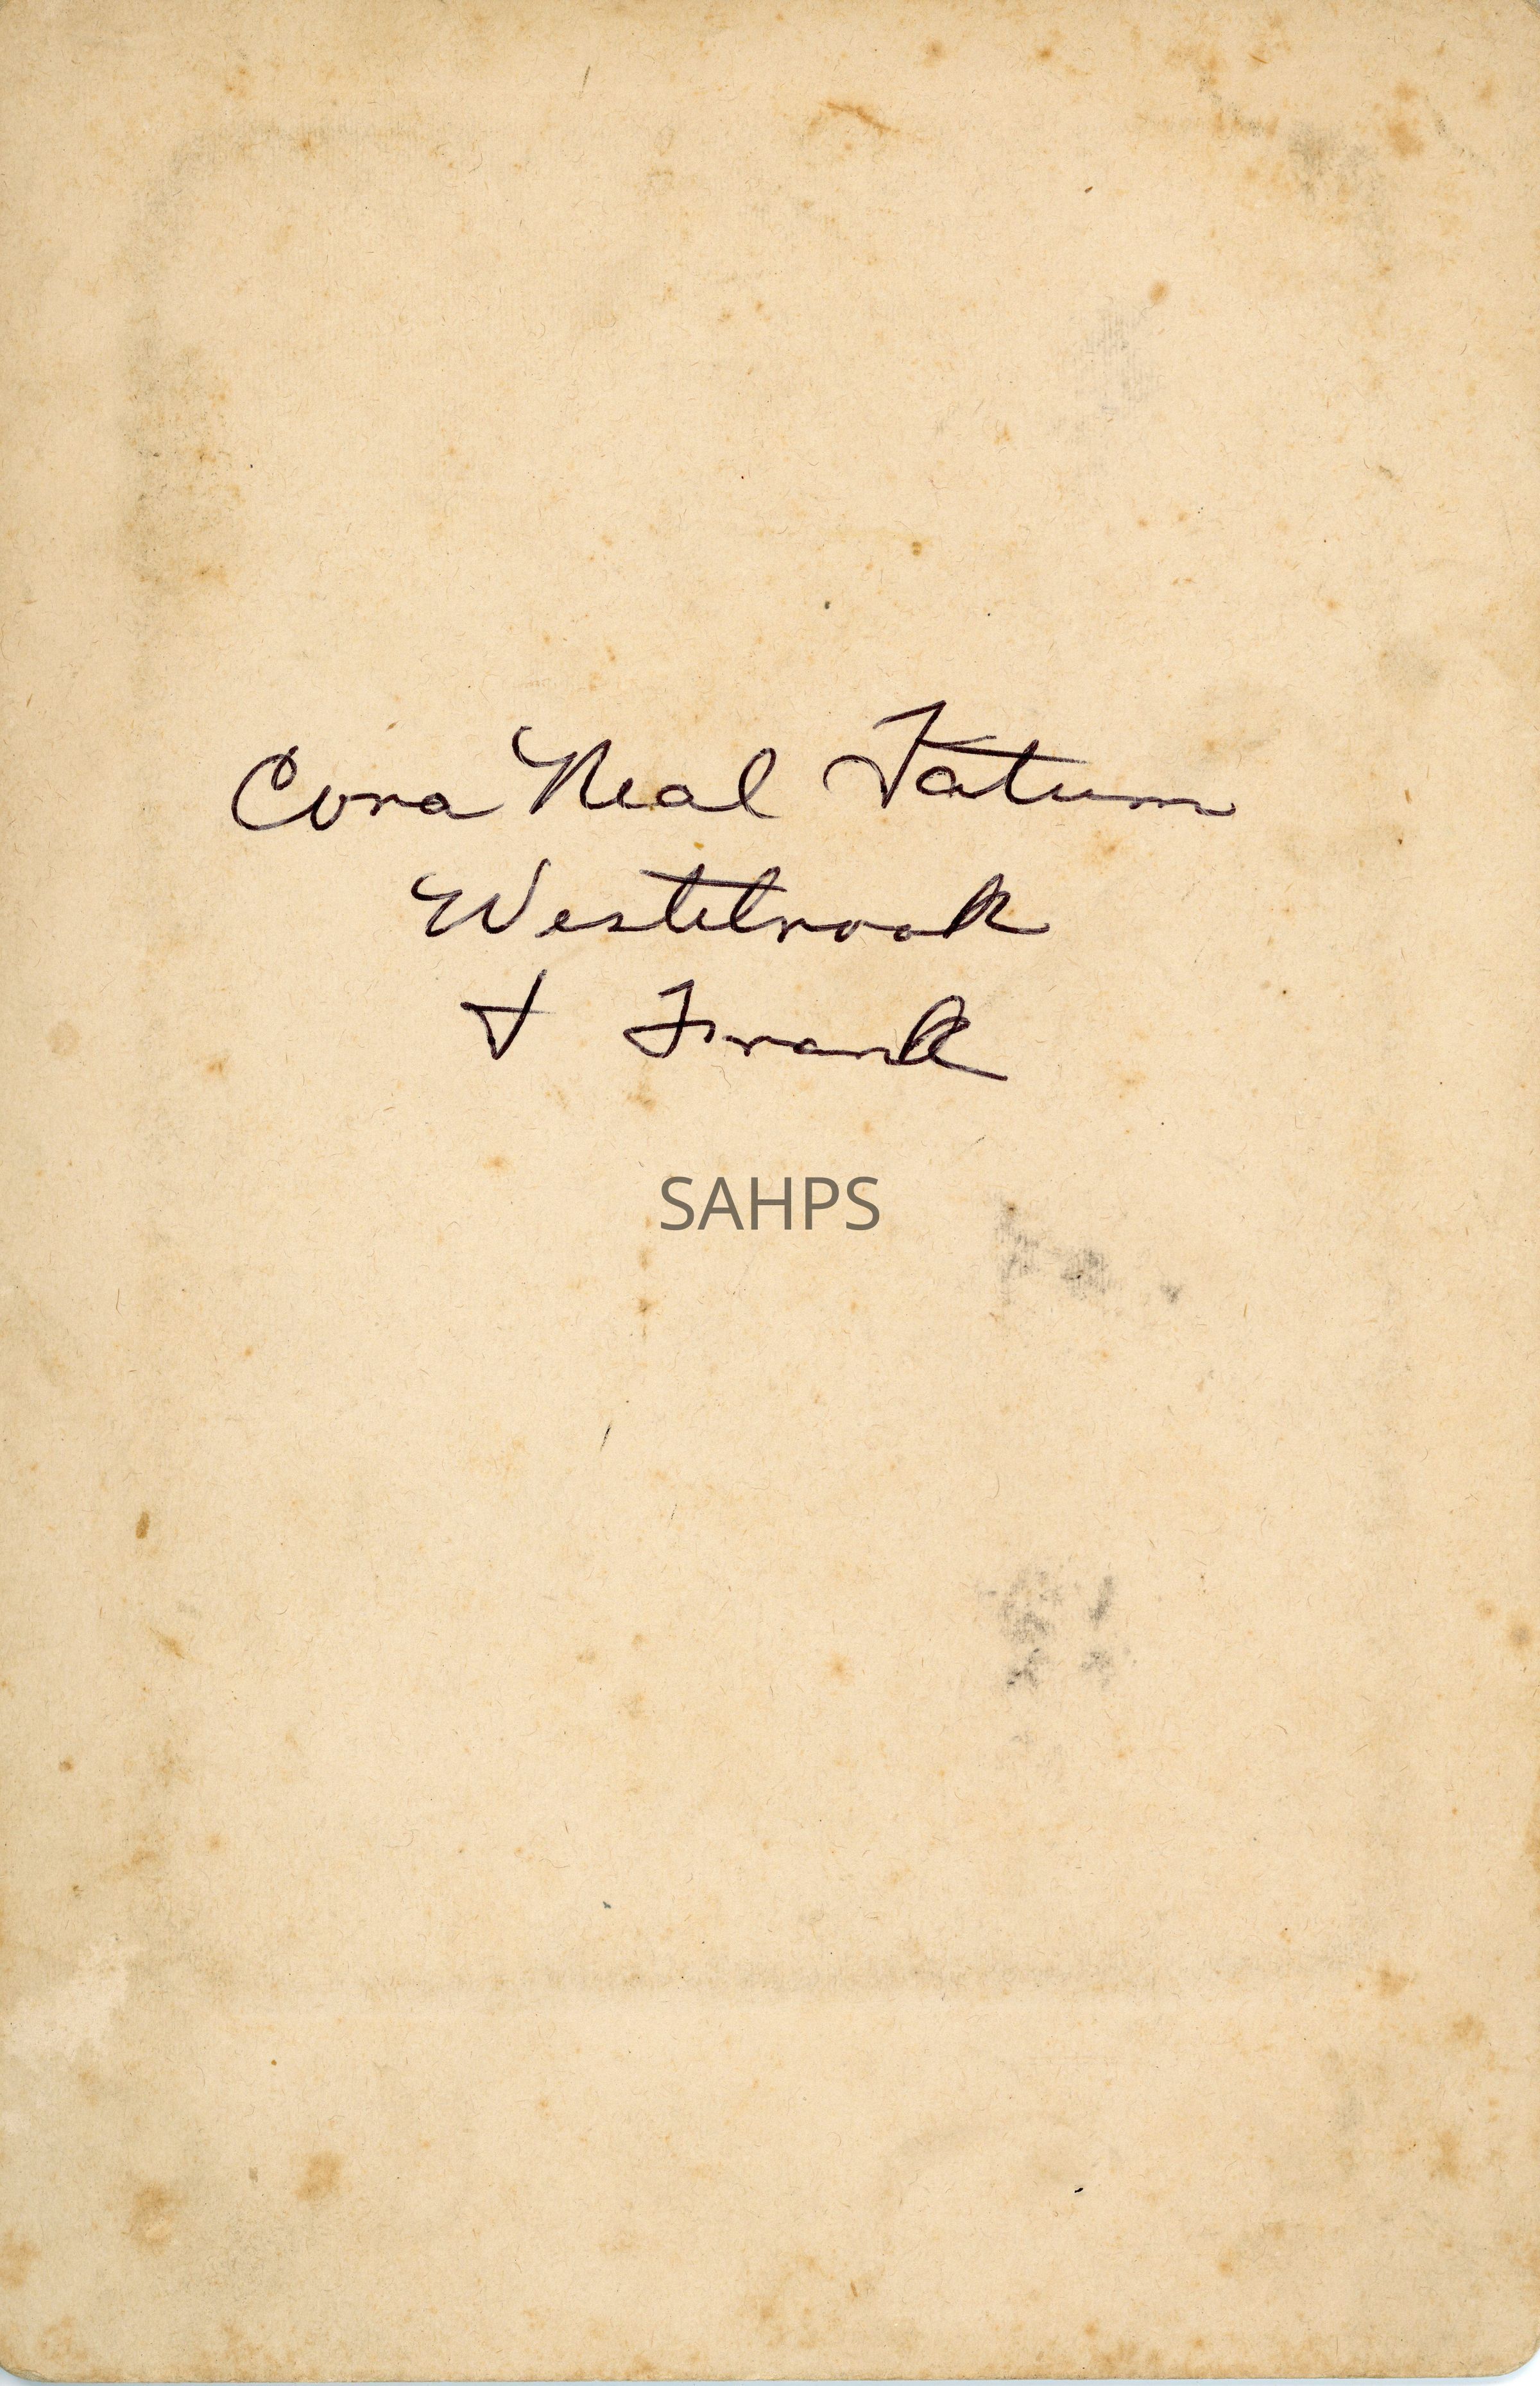 Cora Neal Tatum
Westbrook
& Frank
SAHPS